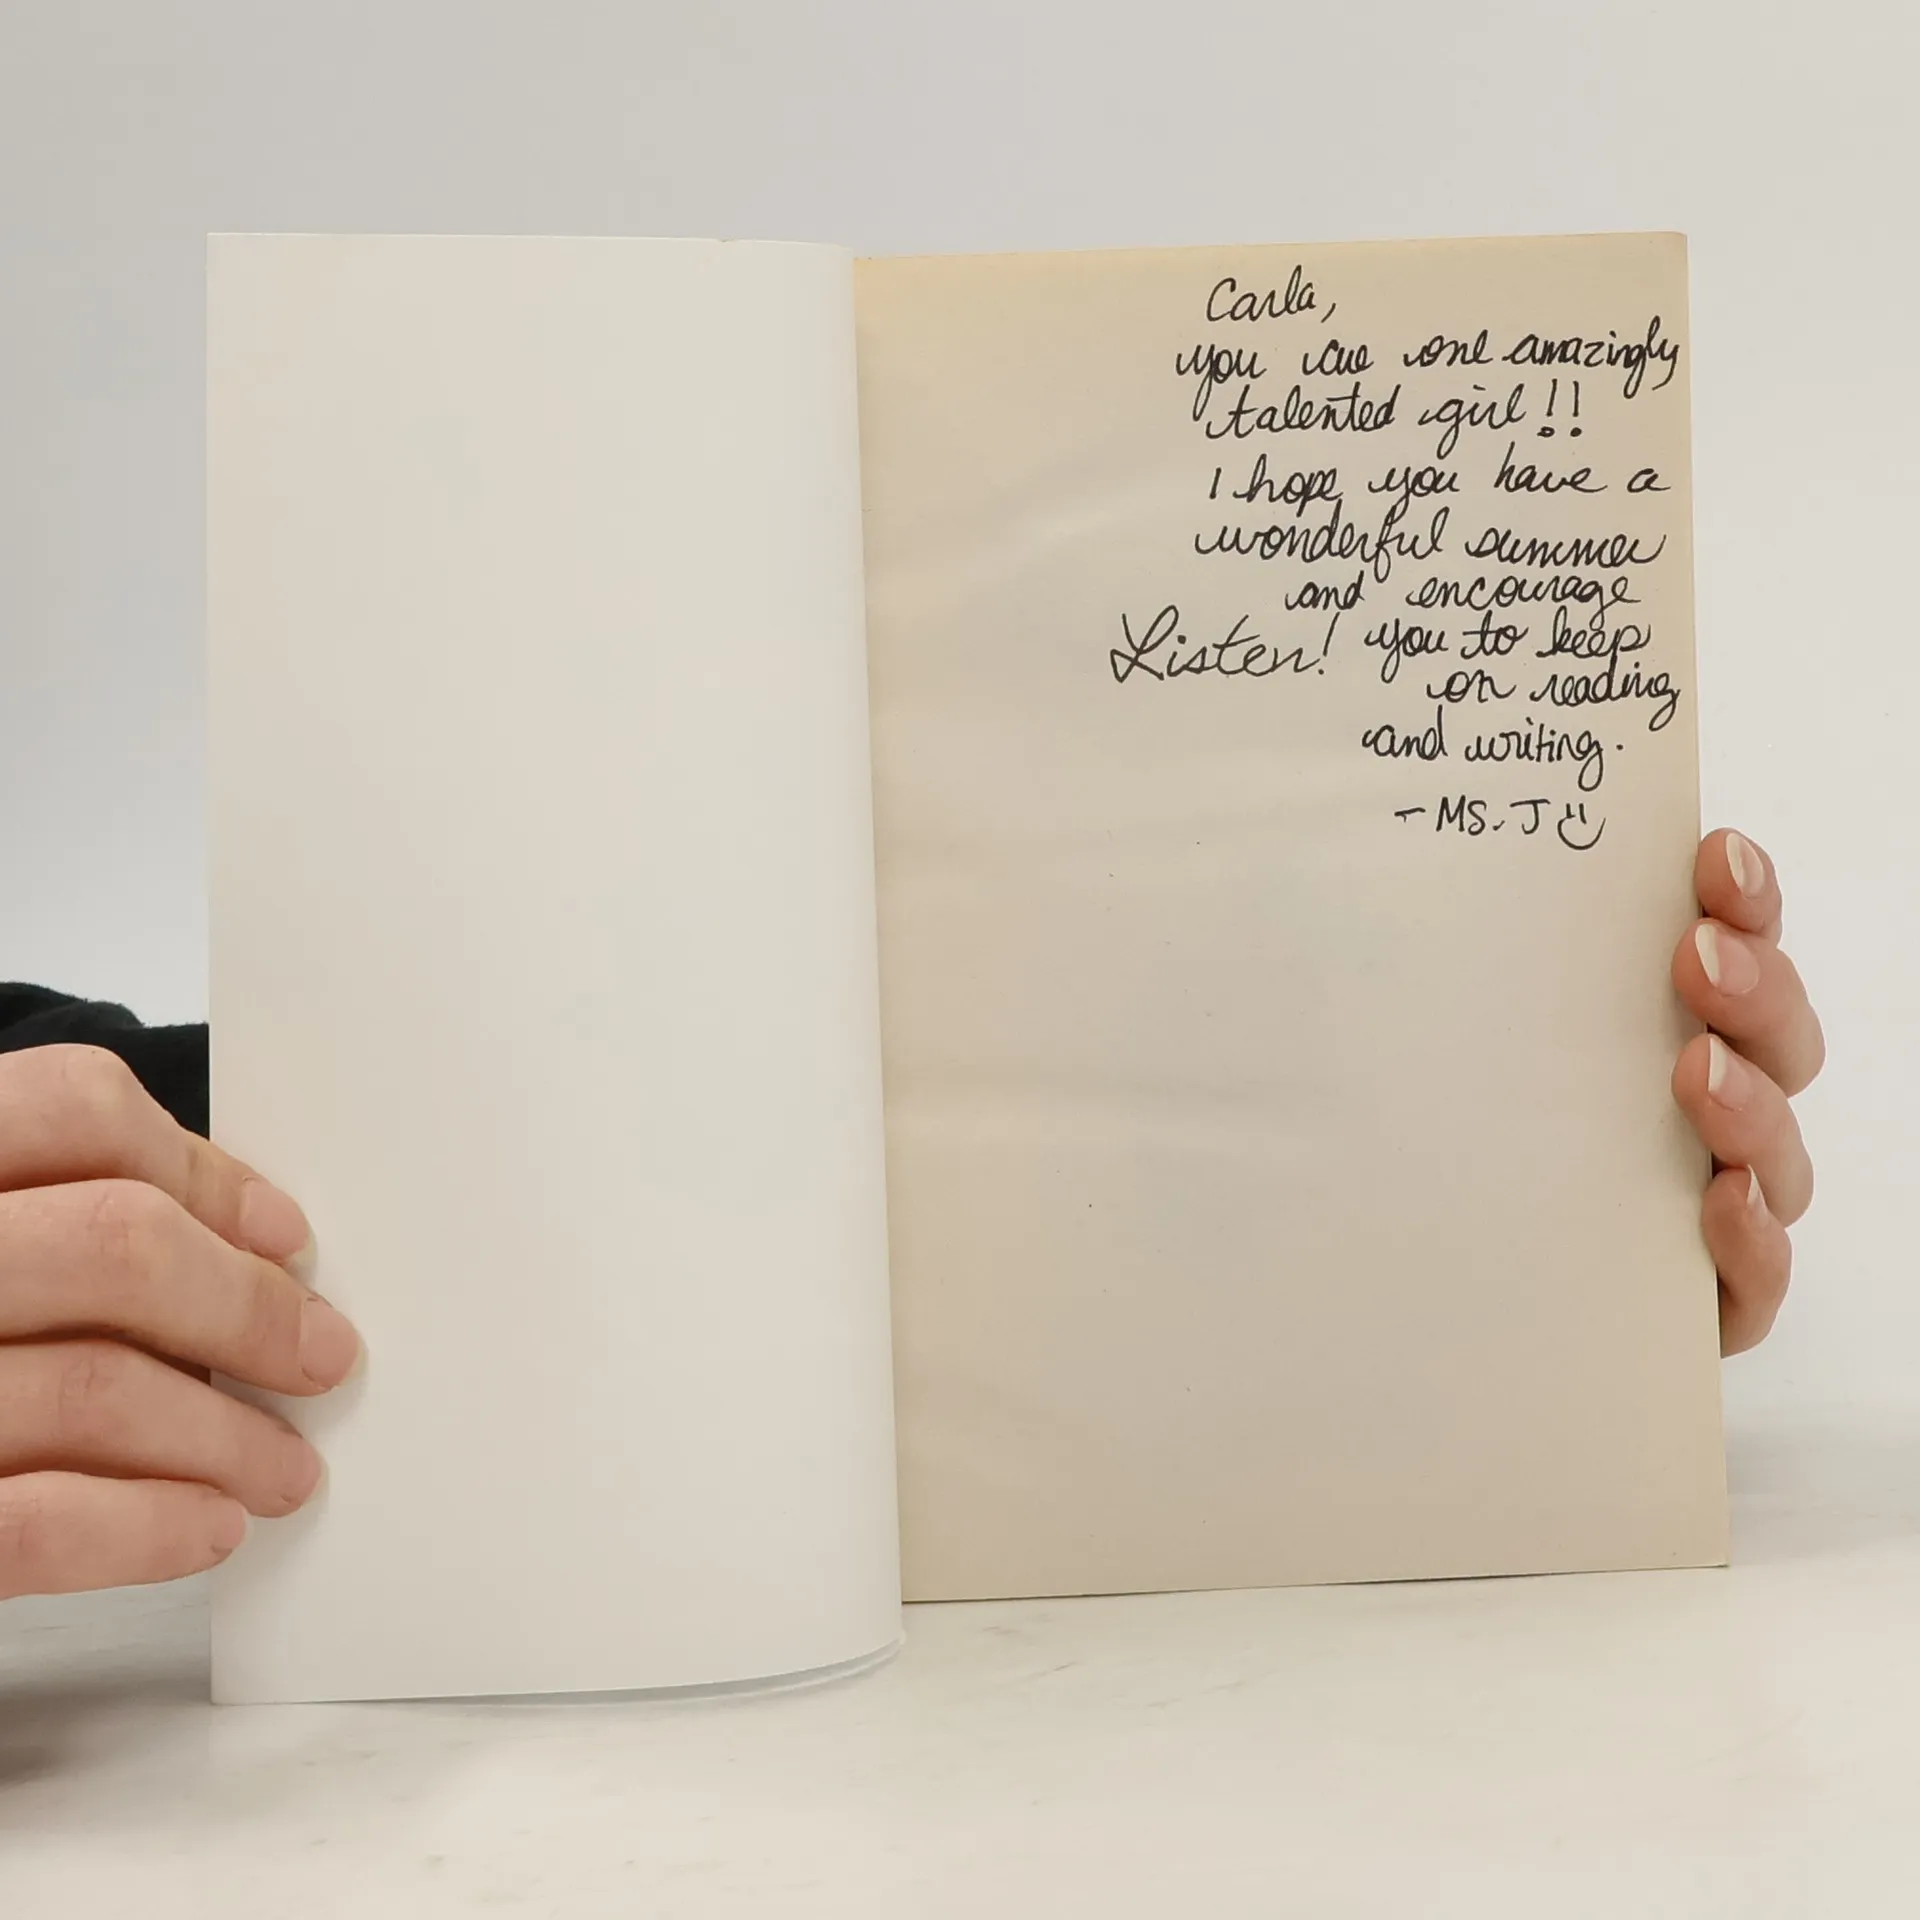 Carla,
you are one amazingly
talented girl!!
I hope you have a
wonderful summer
and encourage
Listen! you to keep
on reading
and writing.
- MS. J